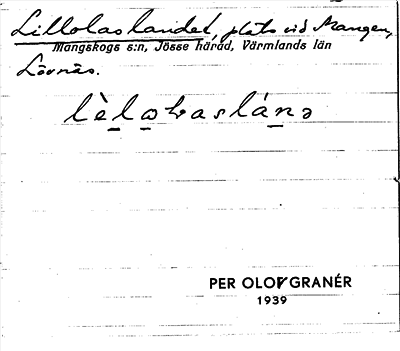 Lillolaslandet, plats vid Mangen,
Mangskogs s:n, Jösse härad, Värmlands län
Lövnäs.
lèlowaslánə
PER OLOF GRANÉR
1939